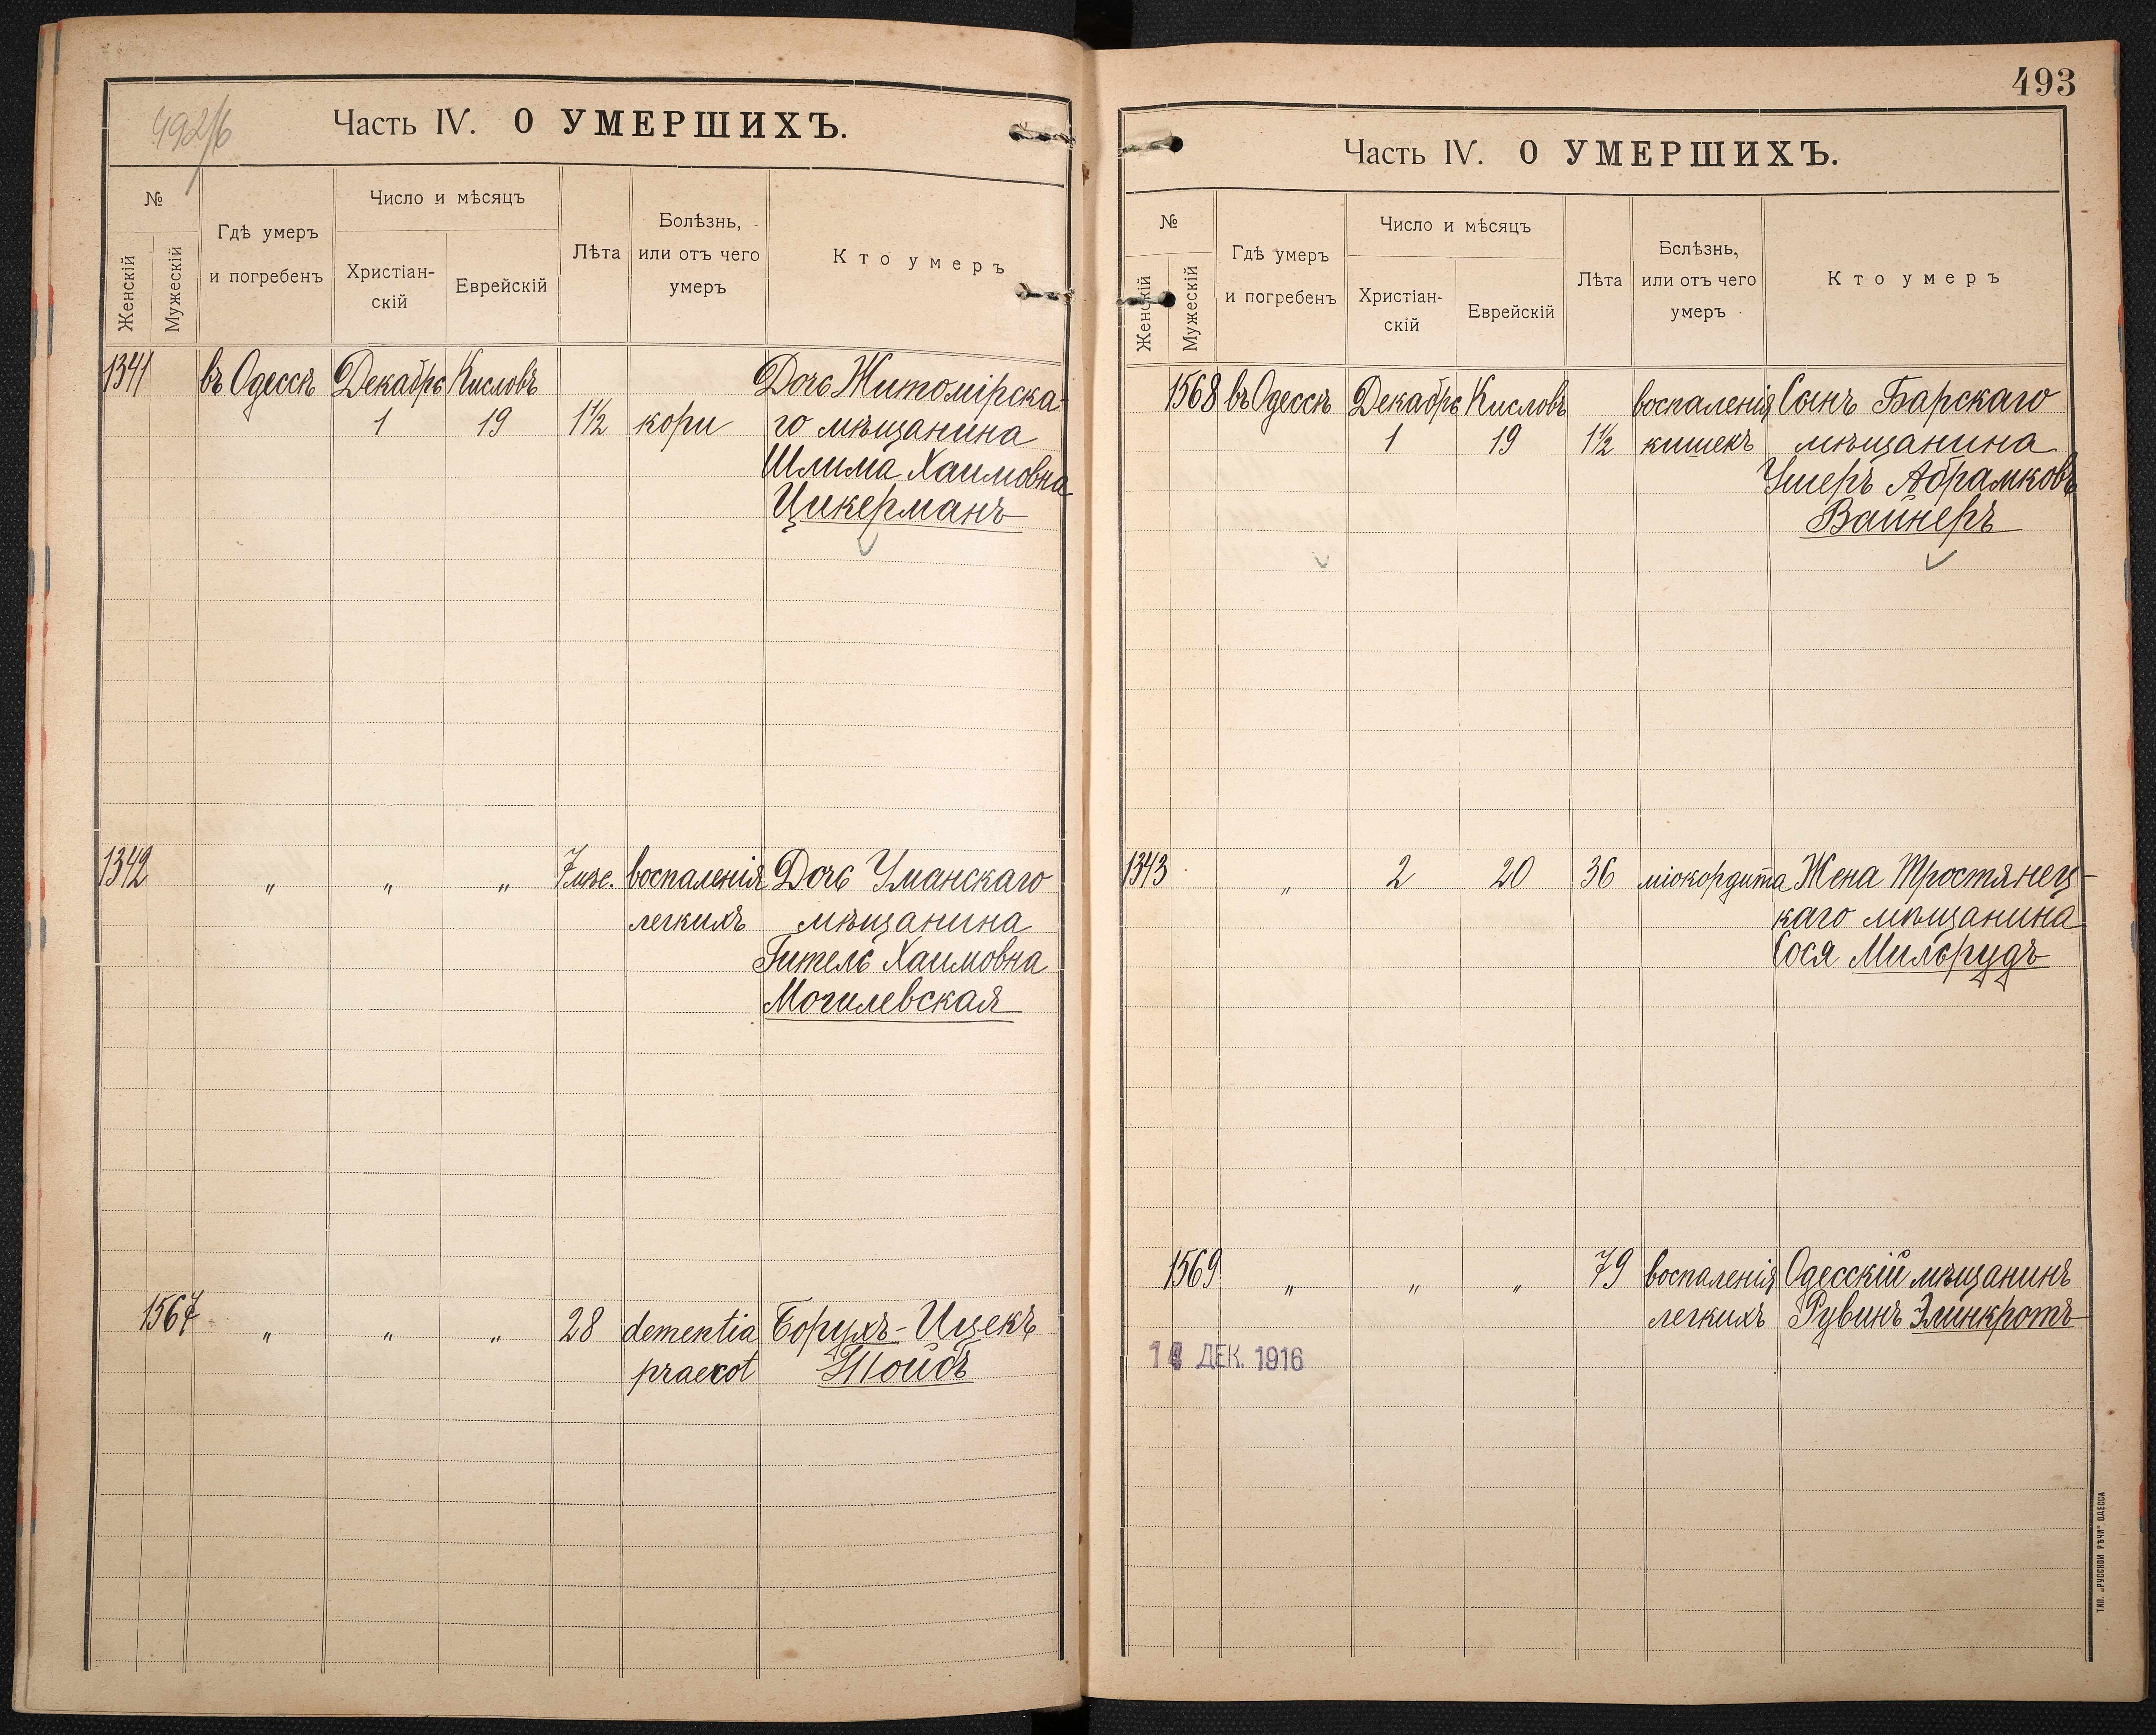 492/6
Часть IV. О УМЕРШИХЪ.
№
Женскій
Мужескій
Гдѣ умеръ
и погребенъ
Число и мѣсяцъ
Христіан-
скій
Еврейскій
Лѣта
Болѣзнь,
или отъ чего
умеръ
Кто умеръ
1341 въ Одессѣ Декабрь Кисловъ Дочь Житомірска-
1 19 1½ кори го мѣщанина
Шлима Хаимовна
Цикерманъ
1342 " " " 7 мѣс. воспаленія Дочь Уманскаго
легкихъ мѣщанина
Гитель Хаимовна
Могилевская
1567 " " " 28 dementia Борухъ-Ицекъ
praecot
493
Часть IV. О УМЕРШИХЪ.
№
Женскій
Мужескій
Гдѣ умеръ
и погребенъ
Число и мѣсяцъ
Христіан-
скій
Еврейскій
Лѣта
Бслѣзнь,
или отъ чего
умеръ
Кто умеръ
1568 въ Одессѣ Декабрь Кисловъ воспаленія Сынъ Барскаго
1 19 1½ кишекъ мѣщанина
Ушеръ Абрамковъ
Вайнеръ
1343 " 2 20 36 міокордита Жена Тростянец-
каго мѣщанина
Сося Мильрудъ
1569 " " " 79 воспаленія Одесскій мѣщанинъ
легкихъ Рувинъ Элинкротъ
ДЕК. 1916
ТИП. „РУССКОЙ РѢЧИ“ ОДЕССА